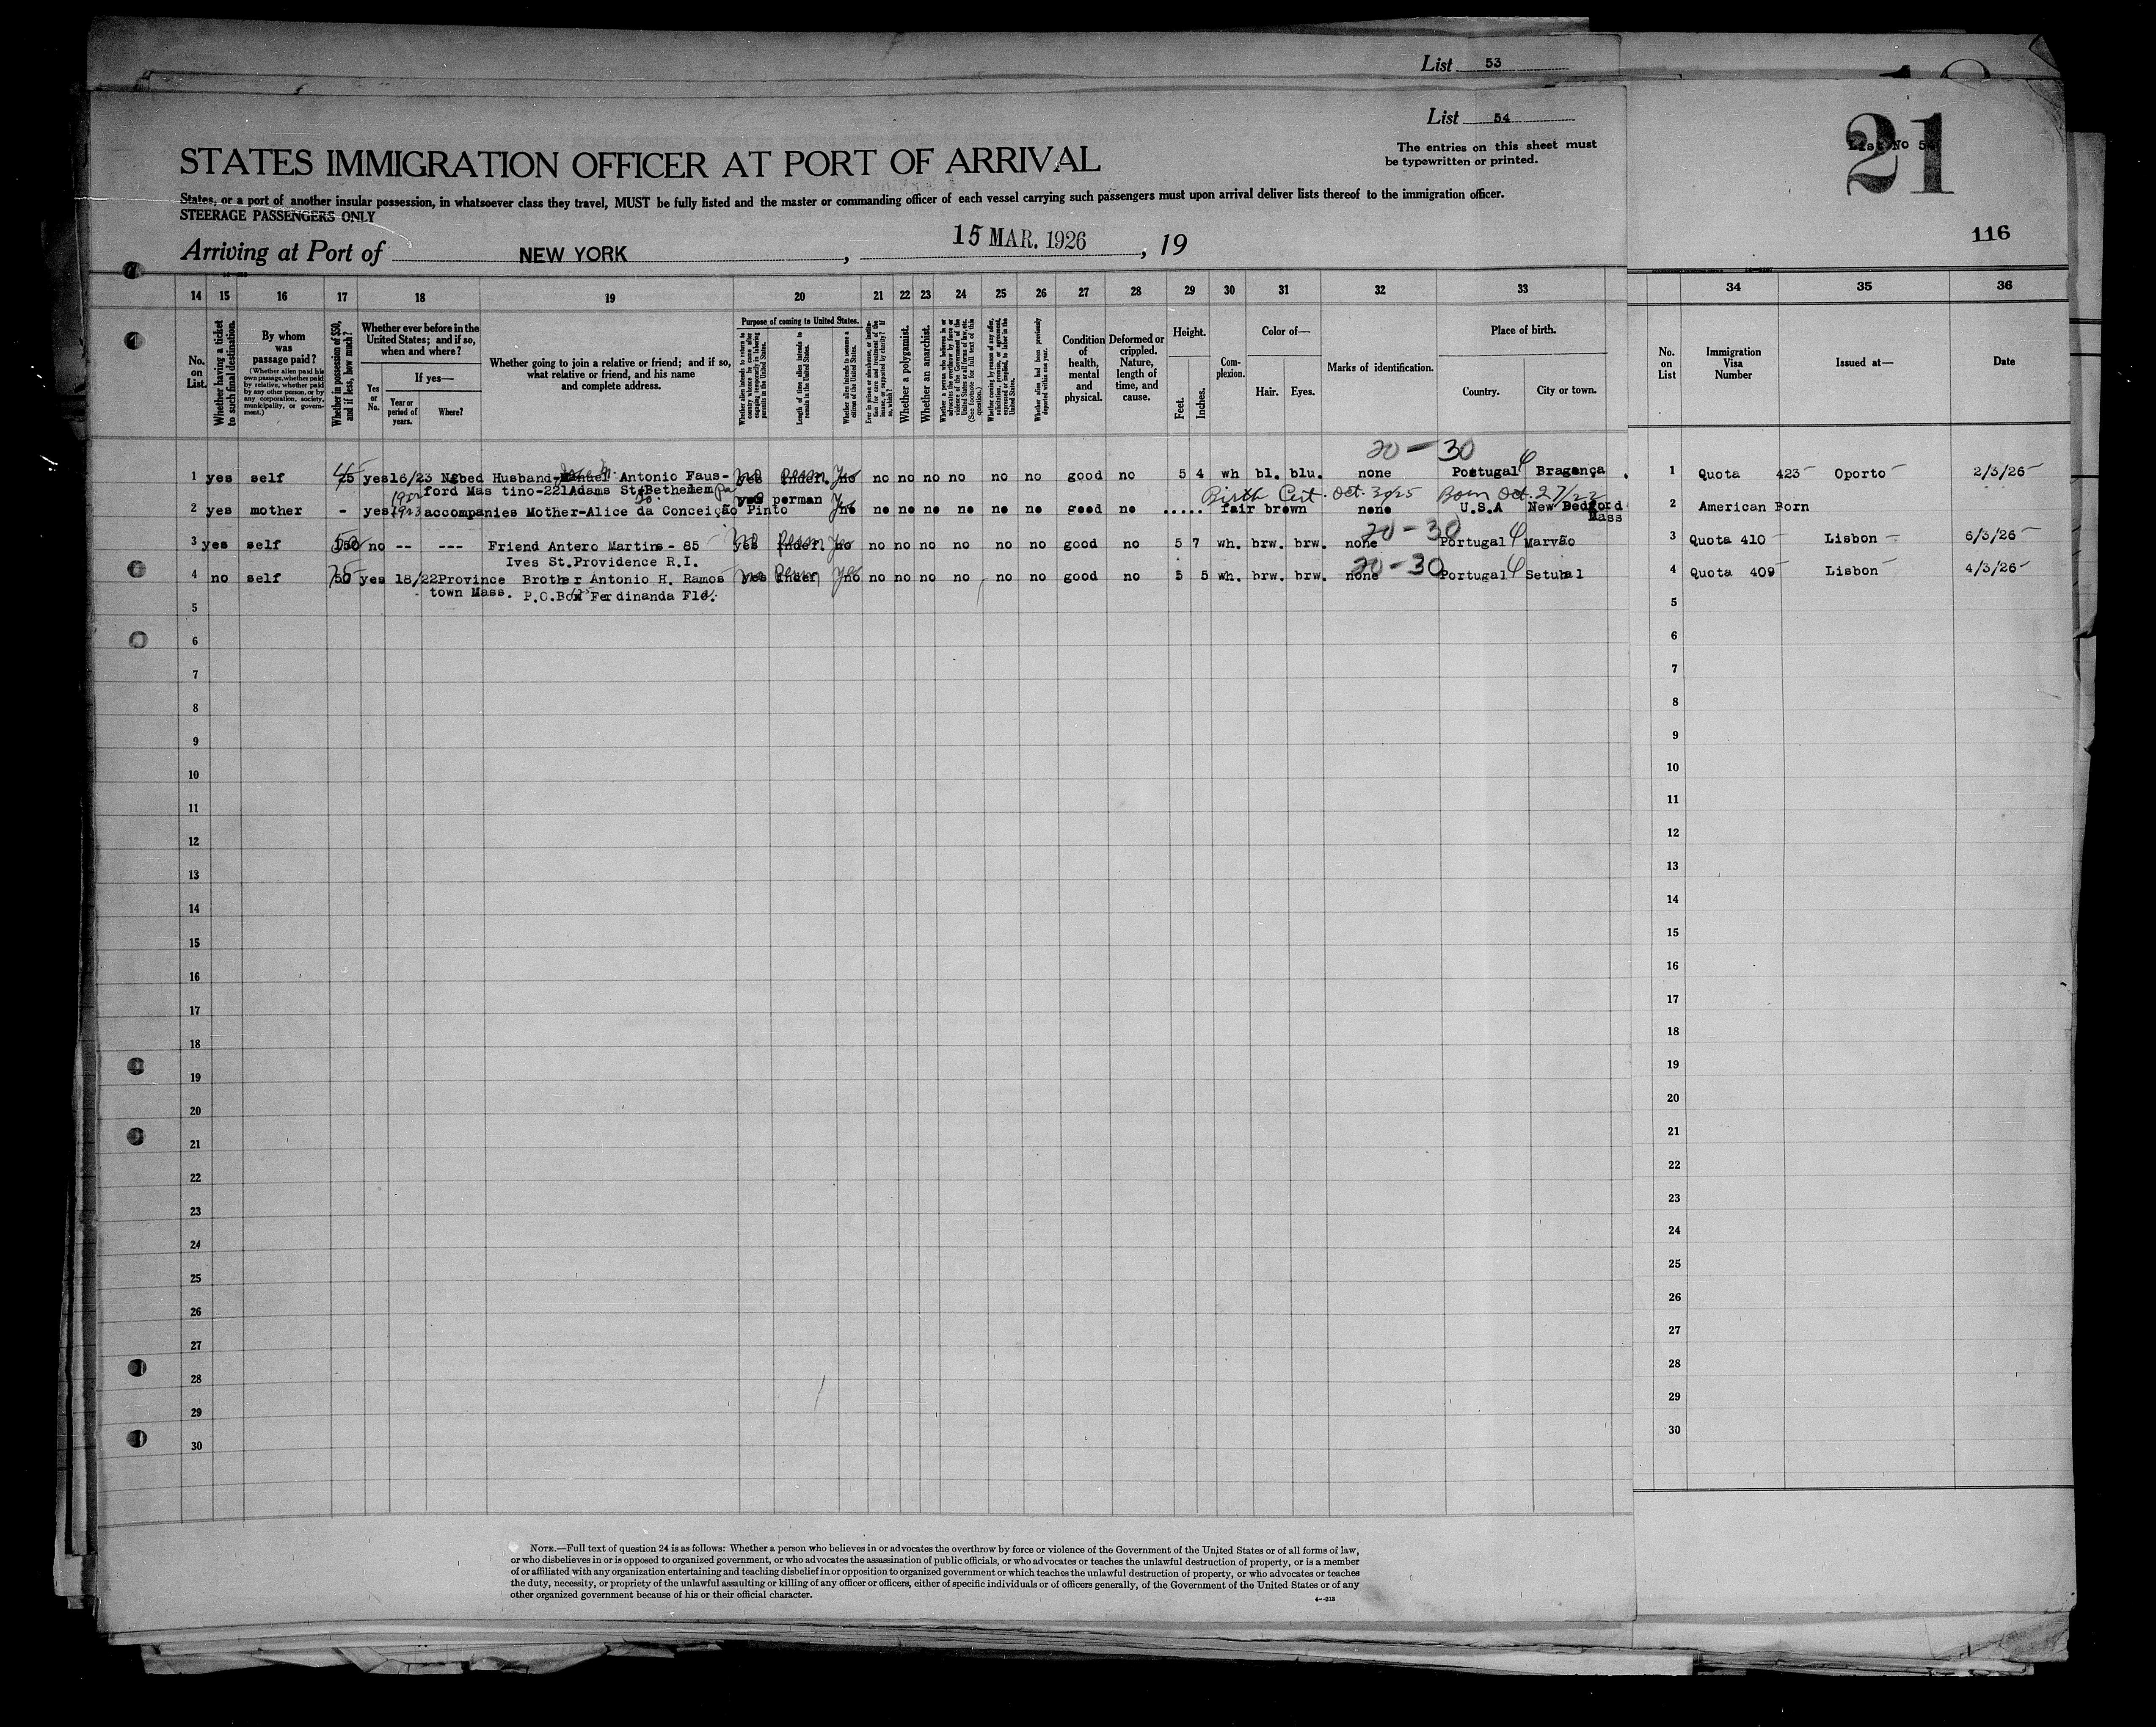 List 53
List 54
The entries on this sheet must
be typewritten or printed.
21
List No 54
116
STATES IMMIGRATION OFFICER AT PORT OF ARRIVAL
States, or a port of another insular possession, in whatsoever class they travel, MUST be fully listed and the master or commanding officer of each vessel carrying such passengers must upon arrival deliver lists thereof to the immigration officer.
STEERAGE PASSENGERS ONLY
Arriving at Port of NEW YORK, 15 MAR. 1926, 19
14 15 16 17 18 19 20 21 22 23 24 25 26 27 28 29 30 31 32 33 34 35 36
No. on List.
Whether having a ticket to such final destination.
By whom was passage paid?
(Whether alien paid his own passage, whether paid by relative, whether paid by any other person, or by any corporation, society, municipality, or government.)
Whether in possession of $50, and if less, how much?
Whether ever before in the United States; and if so, when and where?
Yes or No.
If yes—
Year or period of years.
Where?
Whether going to join a relative or friend; and if so, what relative or friend, and his name and complete address.
Purpose of coming to United States.
Whether alien intends to return to country whence he came after engaging temporarily in laboring pursuits in the United States.
Length of time alien intends to remain in the United States.
Whether alien intends to become a citizen of the United States.
Whether a polygamist.
Whether an anarchist.
Whether coming by reason of any offer, solicitation, promise, or agreement, expressed or implied, to labor in the United States.
Whether alien had been previously deported within one year.
Condition of health, mental and physical.
Deformed or crippled. Nature, length of time, and cause.
Height.
Feet.
Inches.
Complexion.
Color of—
Hair.
Eyes.
Marks of identification.
Place of birth.
Country.
City or town.
No. on List
Immigration Visa Number
Issued at—
Date
20 - 30
1 yes self 45 yes 16/23 Ngbed Husband- Antonio Faus- no Perm. Yes no no no no no no good no 5 4 wh bl. blu. none Portugal Bragança 1 Quota 423 Oporto 2/3/26
ford Mas tino-221Adams St. So. Bethelem Pa
1922 Birth Cert. Oct. 30/25 Born Oct. 27/22
2 yes mother - yes 1923 accompanies Mother-Alice da Conceição Pinto yes perman Yes no no no no no no good no ..... fair brown none U.S.A New Bedford 2 American Born
Mass
20 - 30
3 yes self 50 no -- --- Friend Antero Martins - 85 no Perm Yes no no no no no no good no 5 7 wh. brw. brw. none Portugal Marvão 3 Quota 410 Lisbon 6/3/26
Ives St. Providence R.I.
20 - 30
4 no self 75 yes 18/22 Province Brother Antonio H. Ramos no Perm Yes no no no no no no good no 5 5 wh. brw. brw. none Portugal Setubal 4 Quota 409 Lisbon 4/3/26
town Mass. P.O.Box Ferdinanda Fla.
5 5
6 6
7 7
8 8
9 9
10 10
11 11
12 12
13 13
14 14
15 15
16 16
17 17
18 18
19 19
20 20
21 21
22 22
23 23
24 24
25 25
26 26
27 27
28 28
29 29
30 30
NOTE.—Full text of question 24 is as follows: Whether a person who believes in or advocates the overthrow by force or violence of the Government of the United States or of all forms of law,
or who disbelieves in or is opposed to organized government, or who advocates the assassination of public officials, or who advocates or teaches the unlawful destruction of property, or is a member
of or affiliated with any organization entertaining and teaching disbelief in or opposition to organized government or which teaches the unlawful destruction of property, or who advocates or teaches
the duty, necessity, or propriety of the unlawful assaulting or killing of any officer or officers, either of specific individuals or of officers generally, of the Government of the United States or of any
other organized government because of his or their official character.